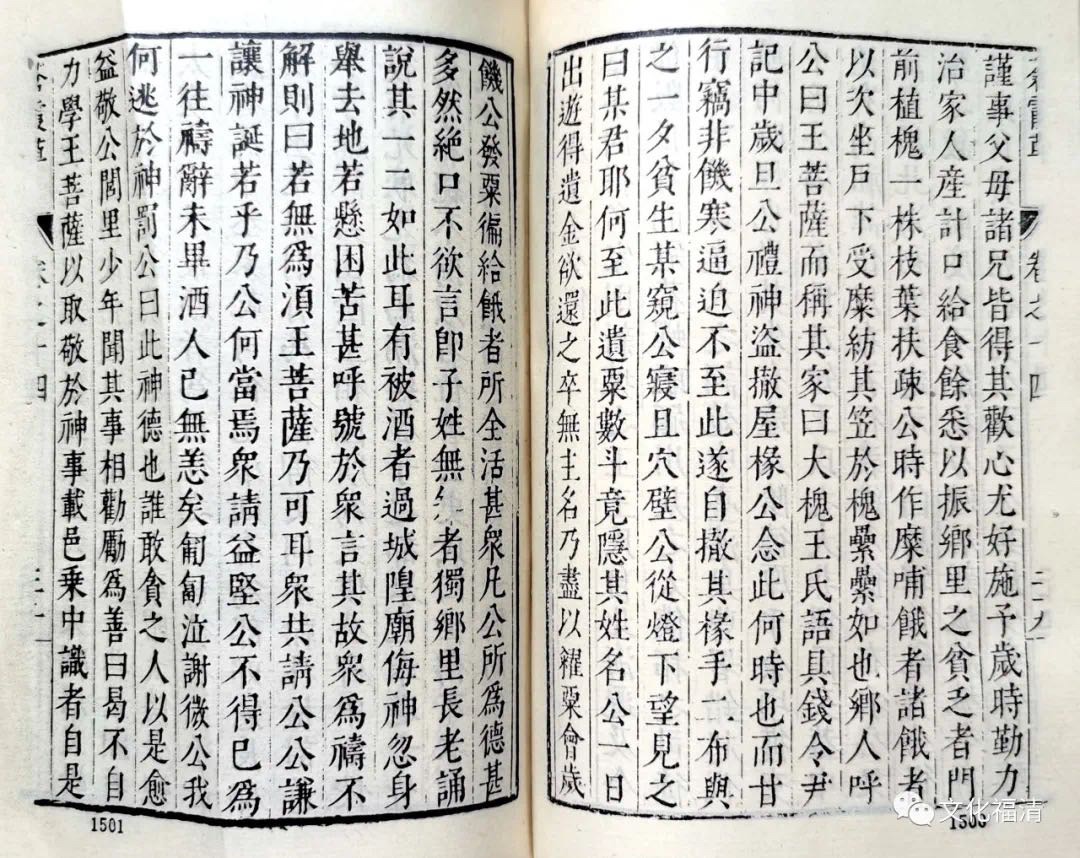 謹事父母諸兄皆得其歡心尤好施予歲時勤力
治家人産計口給食餘悉以振鄉里之貧乏者門
前植槐一株枝葉扶疎公時作糜哺餓者諸餓者
以次坐戸下受糜紡其笠於槐纍纍如也鄉人呼
公曰王菩薩而稱其家曰大槐王氏語具錢令尹
記中歲旦公禮神盜撤屋椽公念此何時也而甘
行竊非饑寒逼迫不至此遂自撤其椽手二布與
之一夕貧生某窺公寢且穴壁公從燈下望見之
曰某君耶何至此遺粟數斗竟隱其姓名公一日
出遊得遺金欲還之卒無主名乃盡以糴粟會歲
饑公發粟徧給餓者所全活甚衆凡公所爲德甚
多然絶口不欲言卽子姓無者獨鄉里長老誦
說其一二如此耳有被酒者過城隍廟侮神忽身
舉去地若懸困苦甚呼號於衆言其故衆爲禱不
解則曰若無爲湏王菩薩乃可耳衆共請公公謙
讓神誕若乎乃公何當焉衆請益堅公不得已爲
一往禱辭未畢酒人已無恙矣匍匐泣謝微公我
何逃於神罰公曰此神德也誰敢貪之人以是愈
益敬公閭里少年聞其事相勸勵爲善曰曷不自
力學王菩薩以取敬於神事載邑乗中識者自是
卷之十四
1501
1500
文化福清